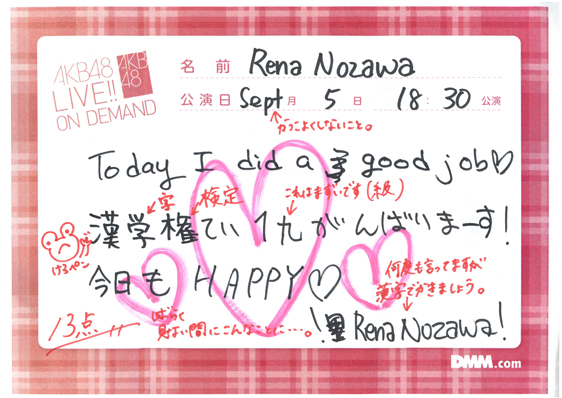 AKB48
LIVE!!
ON DEMAND
AKB
48
名前 Rena Nozawa
公演日 Sept 月 5 日 18:30 公演
かっこよくしないこと。
Today I did a good job♡
字 検定 これはまずいです(級)
漢学権てい1九がんばいまーす!
けろペン
今日も HAPPY♡
何度も言ってますが
漢字でかきましょう。
13点
しばらく
見ない間にこんなことに…。
Rena Nozawa!
DMM.com